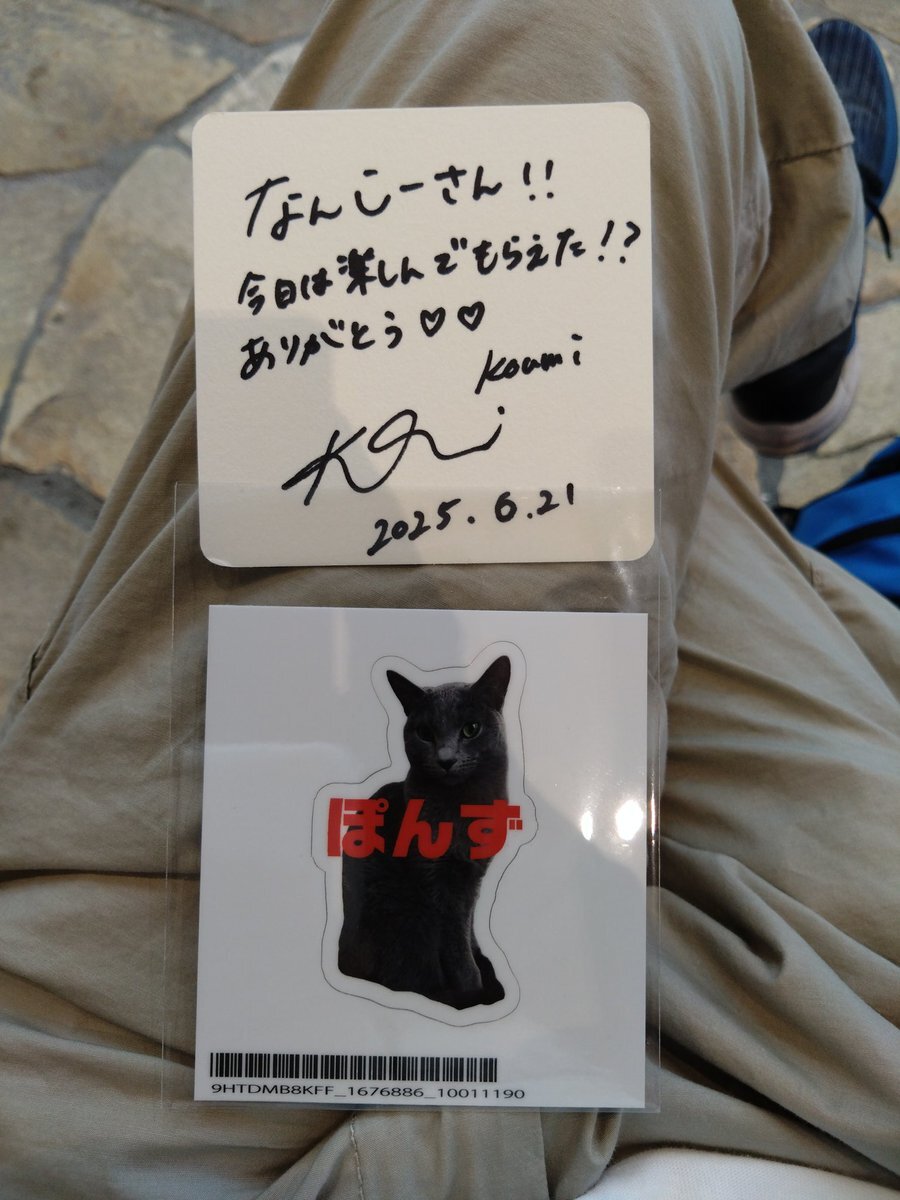 なんしーさん!!
今日は楽しんでもらえた!?
ありがとう♡♡
Koumi
2025.6.21
ぽんず
9HTDMB8KFF_1676886_10011190